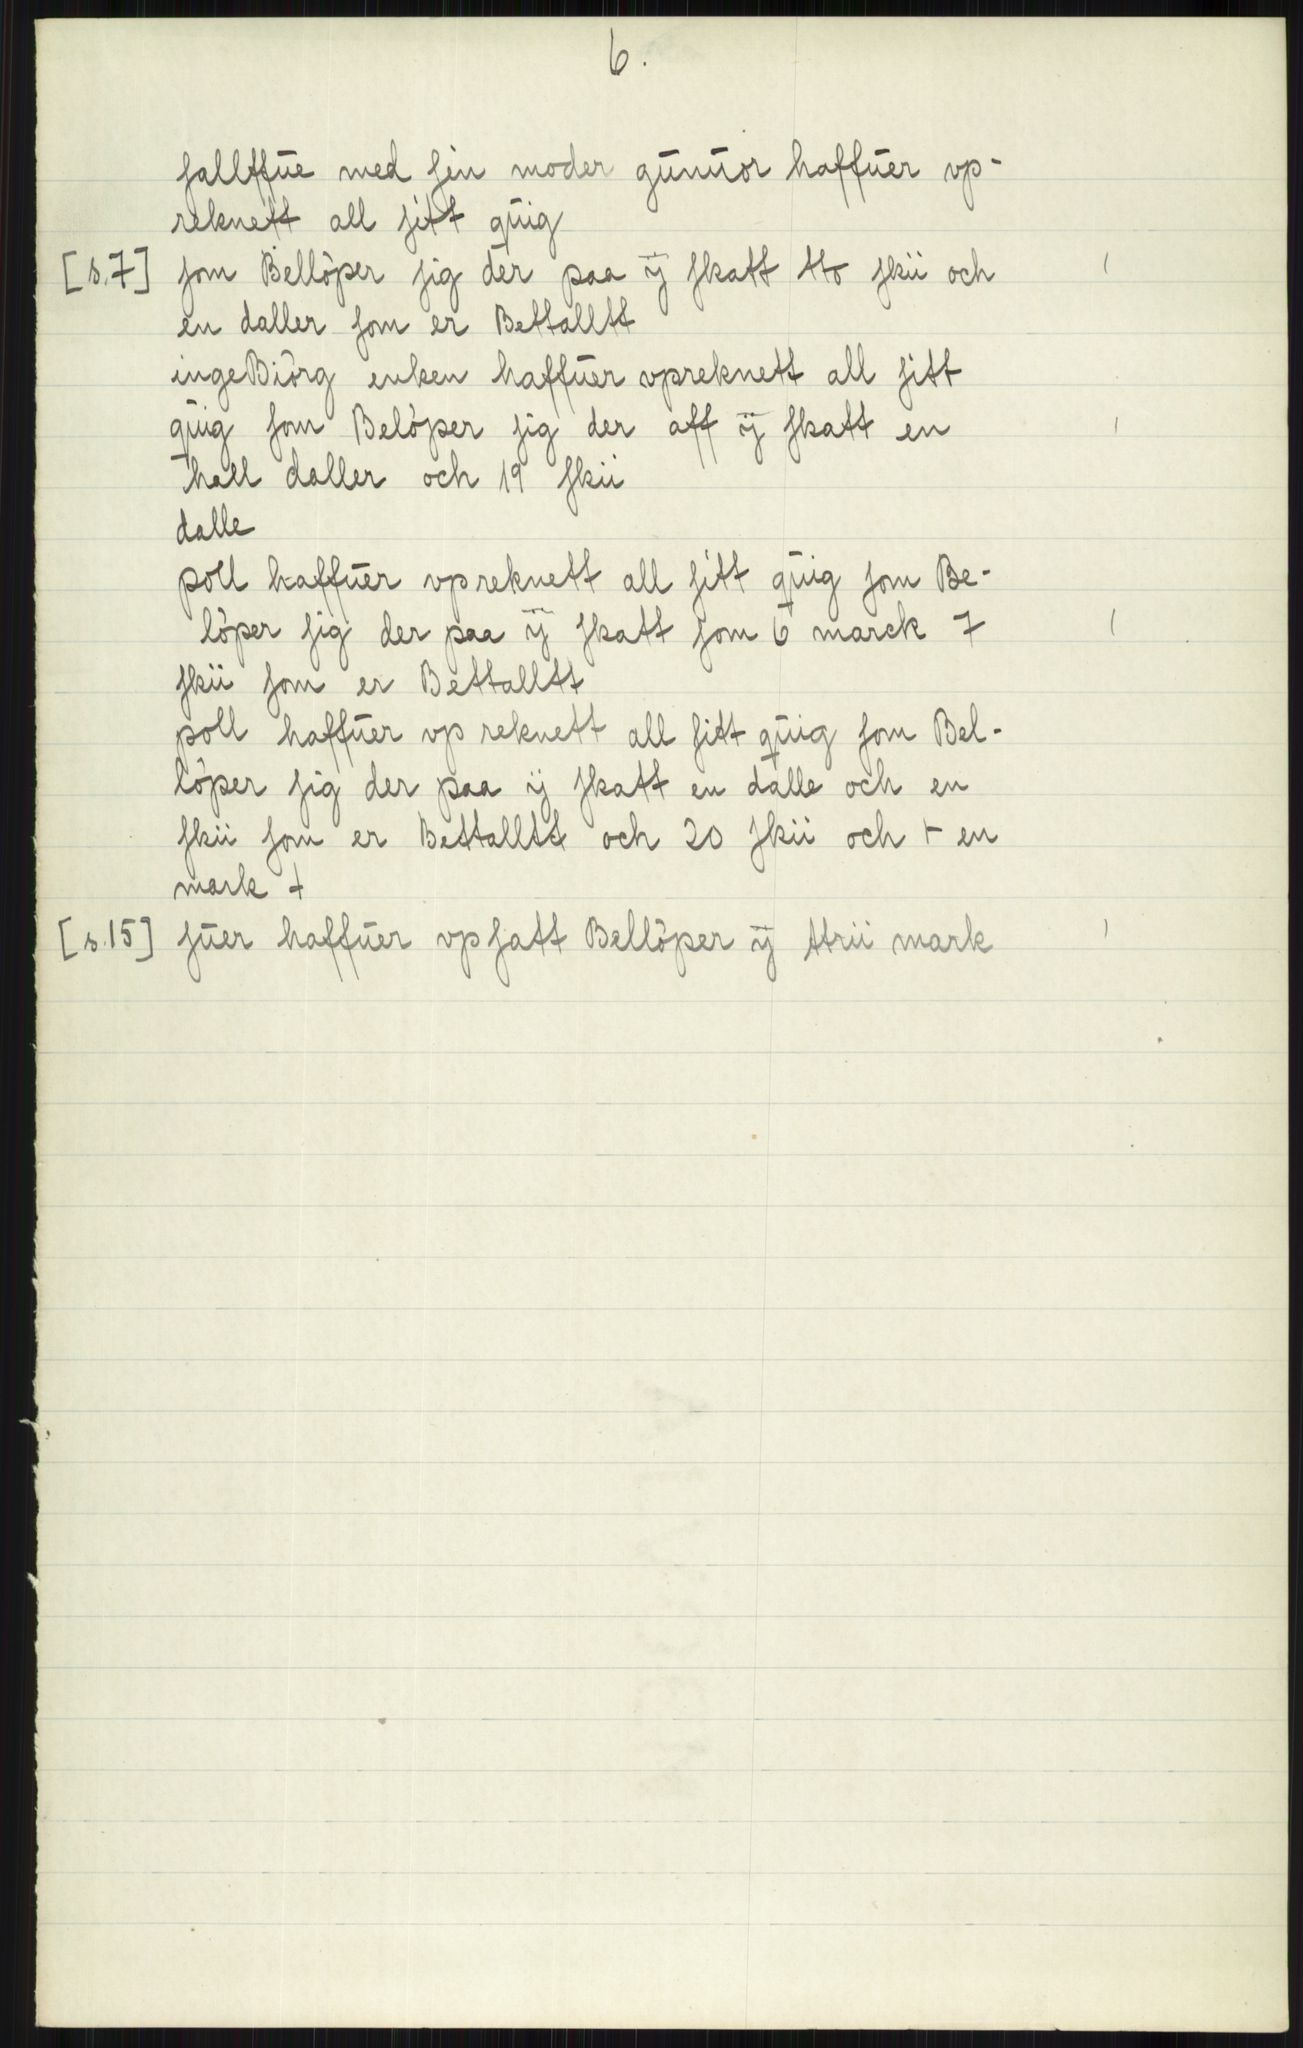 6.
ſallffue med ſin moder gunuor haffuer vp-
reknett all ſitt quig
[s.7] ſom Bellöper ſig der paa ÿ ſkatt tto ſkii och
en daller ſom er Bettalltt
ingeBiörg enken haffuer vpreknett all ſitt
quig ſom Belöper ſig der aff ÿ ſkatt en
hall daller och 19 ſkii
dalle
poll haffuer vpreknett all ſitt quig ſom Be-
löper ſig der paa ÿ ſkatt ſom 6 marck 7
ſkii ſom er Bettalltt
poll haffuer vp reknett all ſitt quig ſom Bel-
löper ſig der paa ÿ ſkatt en dalle och en
ſkii ſom er Bettalltt och 20 ſkii och + en
mark +
[s.15] ſuer haffuer vpſatt Bellöper ÿ ttrii mark